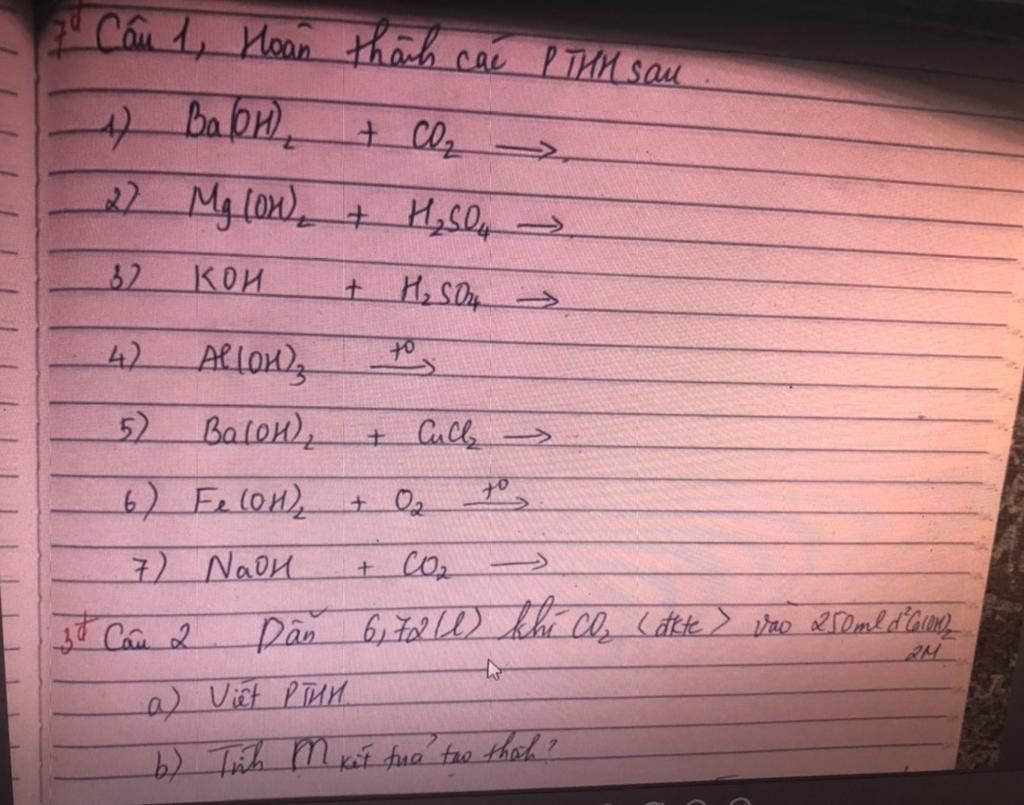 7đ Câu 1, Hoàn thành các PTHH sau.
1) Ba(OH)₂ + CO₂ →
2) Mg(OH)₂ + H₂SO₄ →
3) KOH + H₂SO₄ →
4) Al(OH)₃ →
5) Ba(OH)₂ + CuCl₂ →
6) Fe(OH)₂ + O₂ →
7) NaOH + CO₂ →
3đ Câu 2. Dẫn 6,72(l) khí CO₂ (đktc) vào 250ml d²
2M
a) Viết PTHH
b) Tính m kết tủa tạo thành?